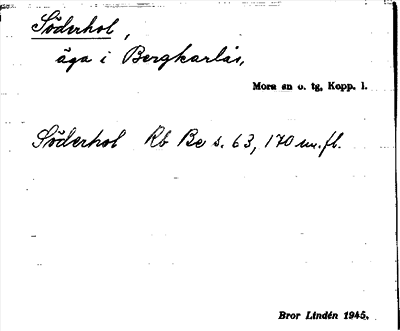 Söderhol,
äga i Bergkarlås,
Mora sn o. tg, Kopp. l.
Söderhol Rb Be s. 63, 170 m.fl.
Bror Lindén 1945.